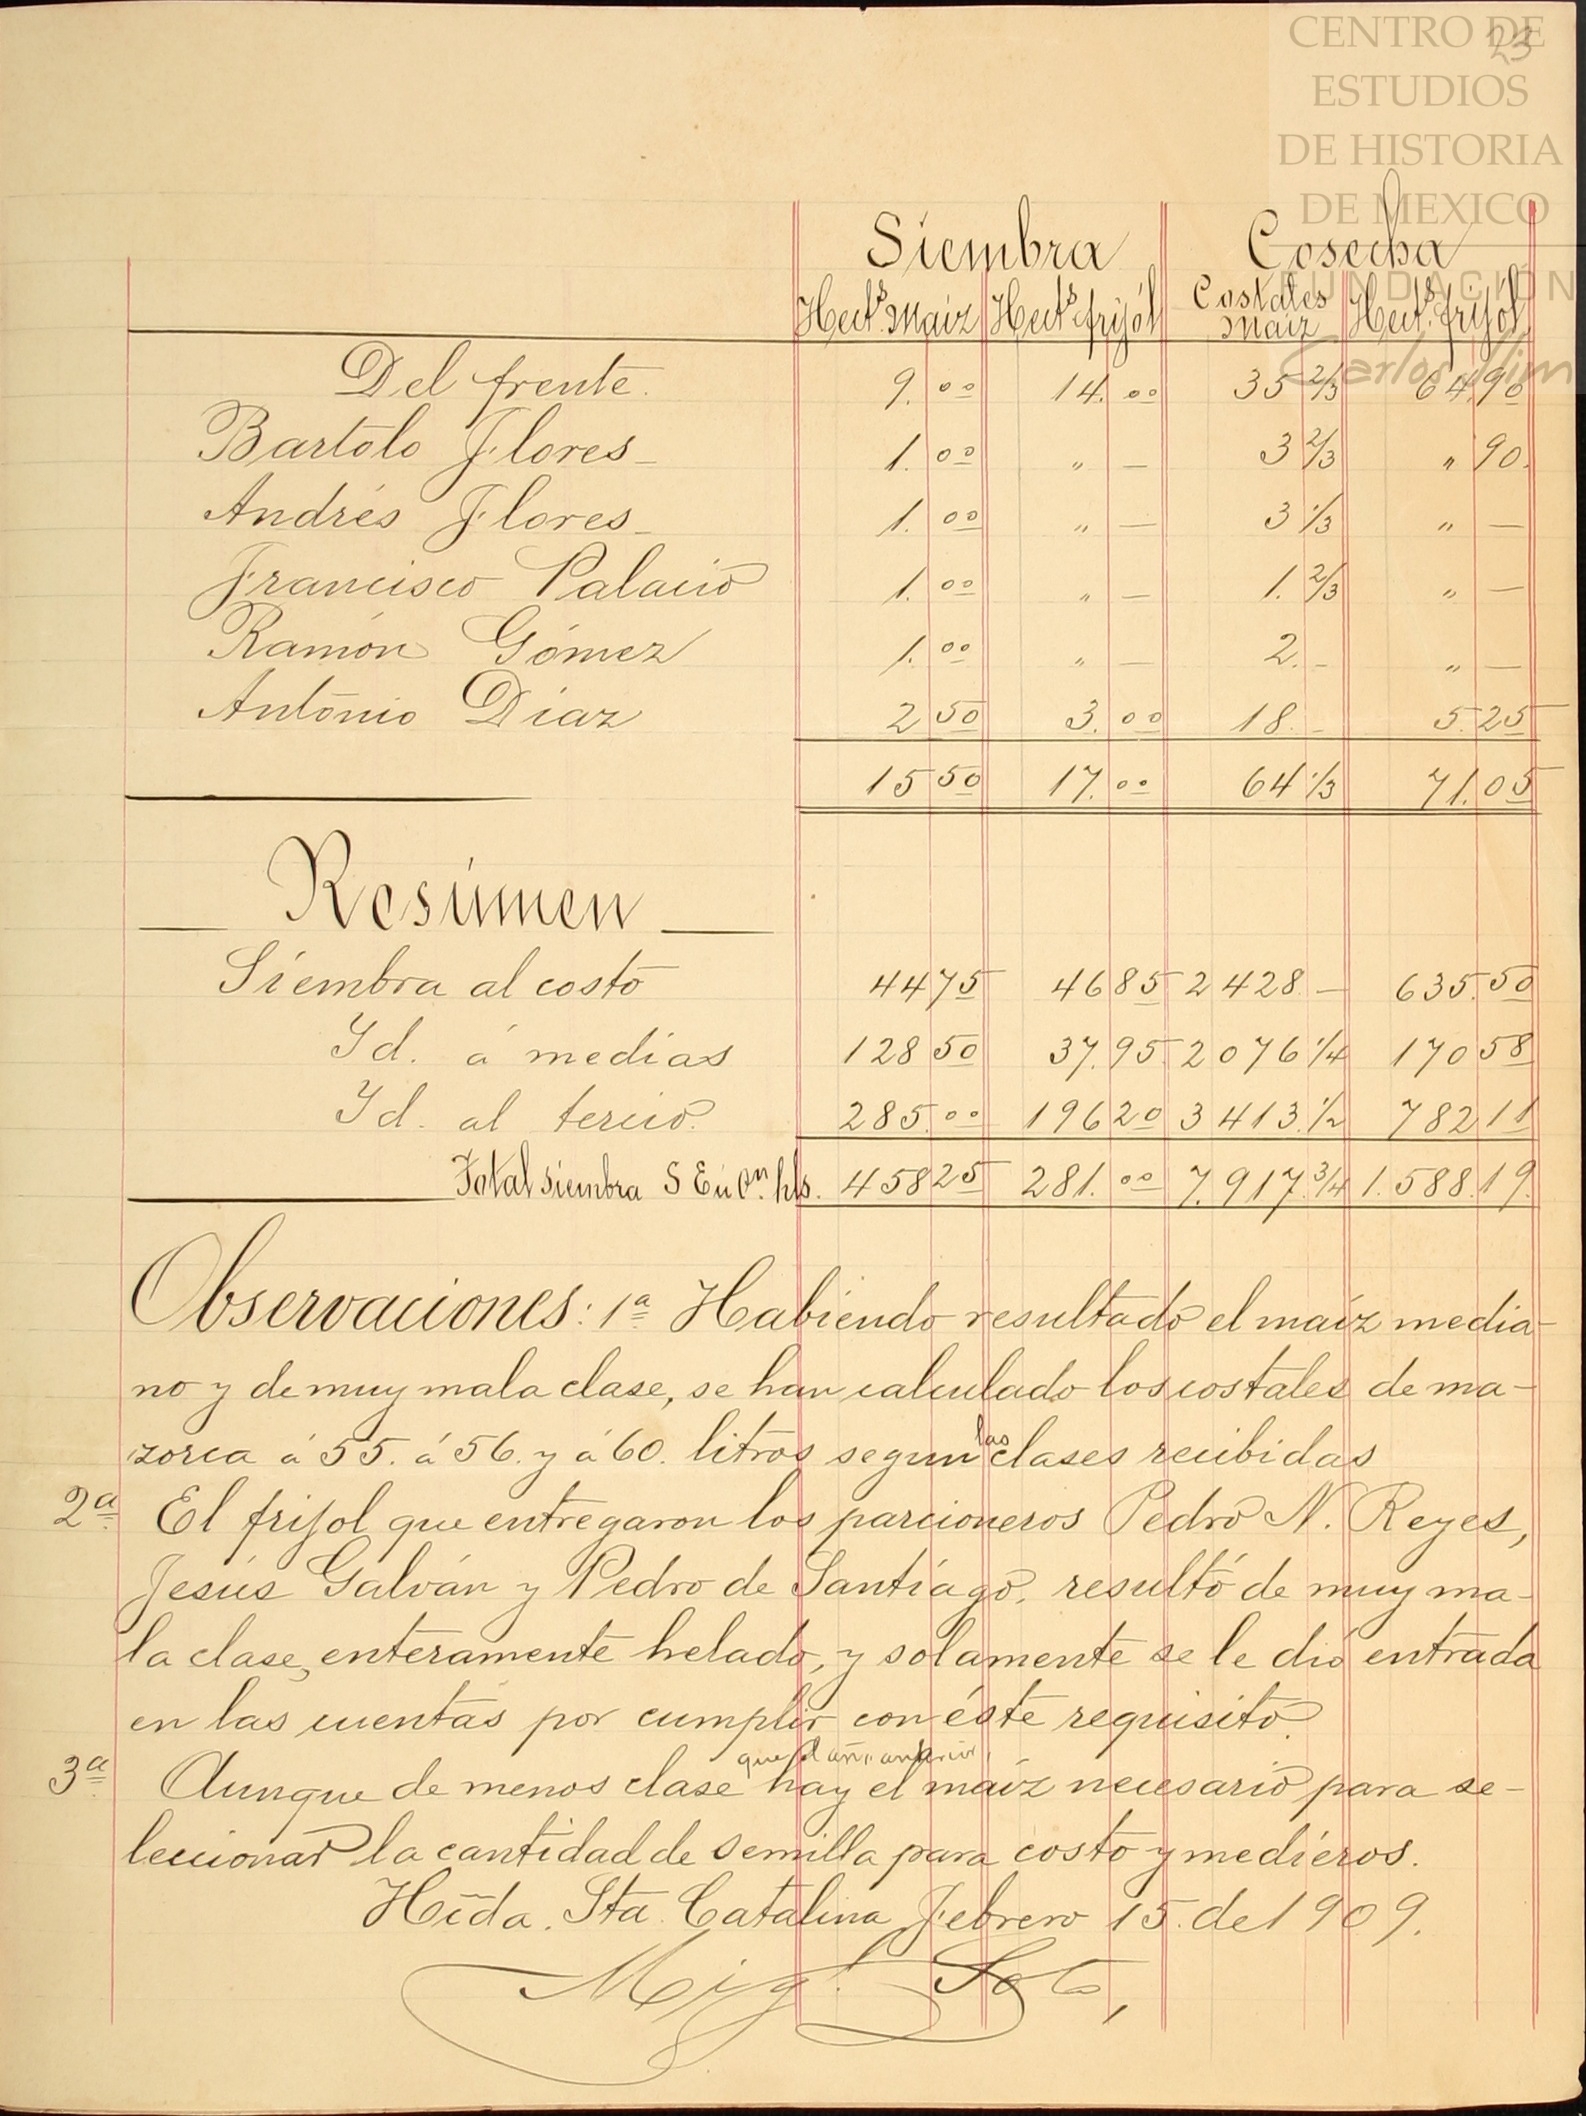 CENTRO DE
ESTUDIOS
DE HISTORIA
DE MEXICO
FUNDACIÓN
Carlos Slim
23
Siembra Cosecha
Hect.s Maiz Hect.s frijól Costales Maiz Hect.s frijol
Del frente. 9.00 14.00 35 2/3 64.90
Bartolo Flores 1.00 " — 3 2/3 " 90.
Andrés Flores 1.00 " — 3 1/3 " —
Francisco Palacio 1.00 " — 1. 2/3 " —
Ramón Gómez 1.00 " — 2. - " —
Antonio Díaz 2 50 3.00 18. - 5.25
15 50 17.00 64 1/3 71.05
Resúmen
Siembra al costo 44 75 46 85 2428. — 635.50
Id. á medias 128 50 37.95 2076 1/4 170 58
Id. al tercio. 285.00 196 20 3413. 1/2 782 11
Total siembra S E ú On. hls. 458 25 281.00 7.917. 3/4 1.588.19.
Observaciones: 1ª Habiendo resultado el maíz media-
no y de muy mala clase, se han calculado los costales de ma-
zorca á 55. á 56. y á 60. litros segun las clases recibidas
2ª. El frijol que entregaron los parcioneros Pedro N. Reyes,
Jesús Galván y Pedro de Santiago, resultó de muy ma-
la clase, enteramente helado, y solamente se le dió entrada
en las cuentas por cumplir con éste requisito.
3ª. Aunque de menos clase que el año anterior, hay el maíz necesario para se-
leccionar la cantidad de semilla para costo y medieros.
Hcda. Sta. Catalina Febrero 15. de 1909.
Migl. Soto,